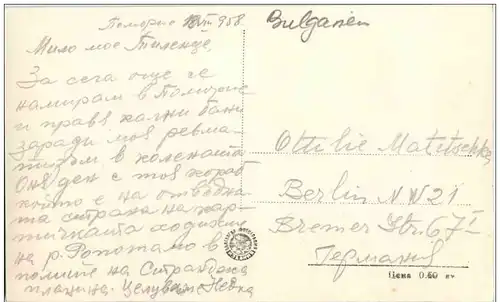 Поморие VIII 958.
Мило мое Тиленце,
За сега още се
намирам в Поморие
и правя кални бани
заради моя ревма-
тизъм в коленете
Оня ден с тоя кораб
който е на отводна-
та страна на кар-
тичката ходихме
на р. Ропотамо в
полите на Странджа
планина. Целувам Невка
Bulgarien
Ottilie Matetschka
Berlin NW 21
Bremer Str. 67 I
Германия
Цена 0.60 лв